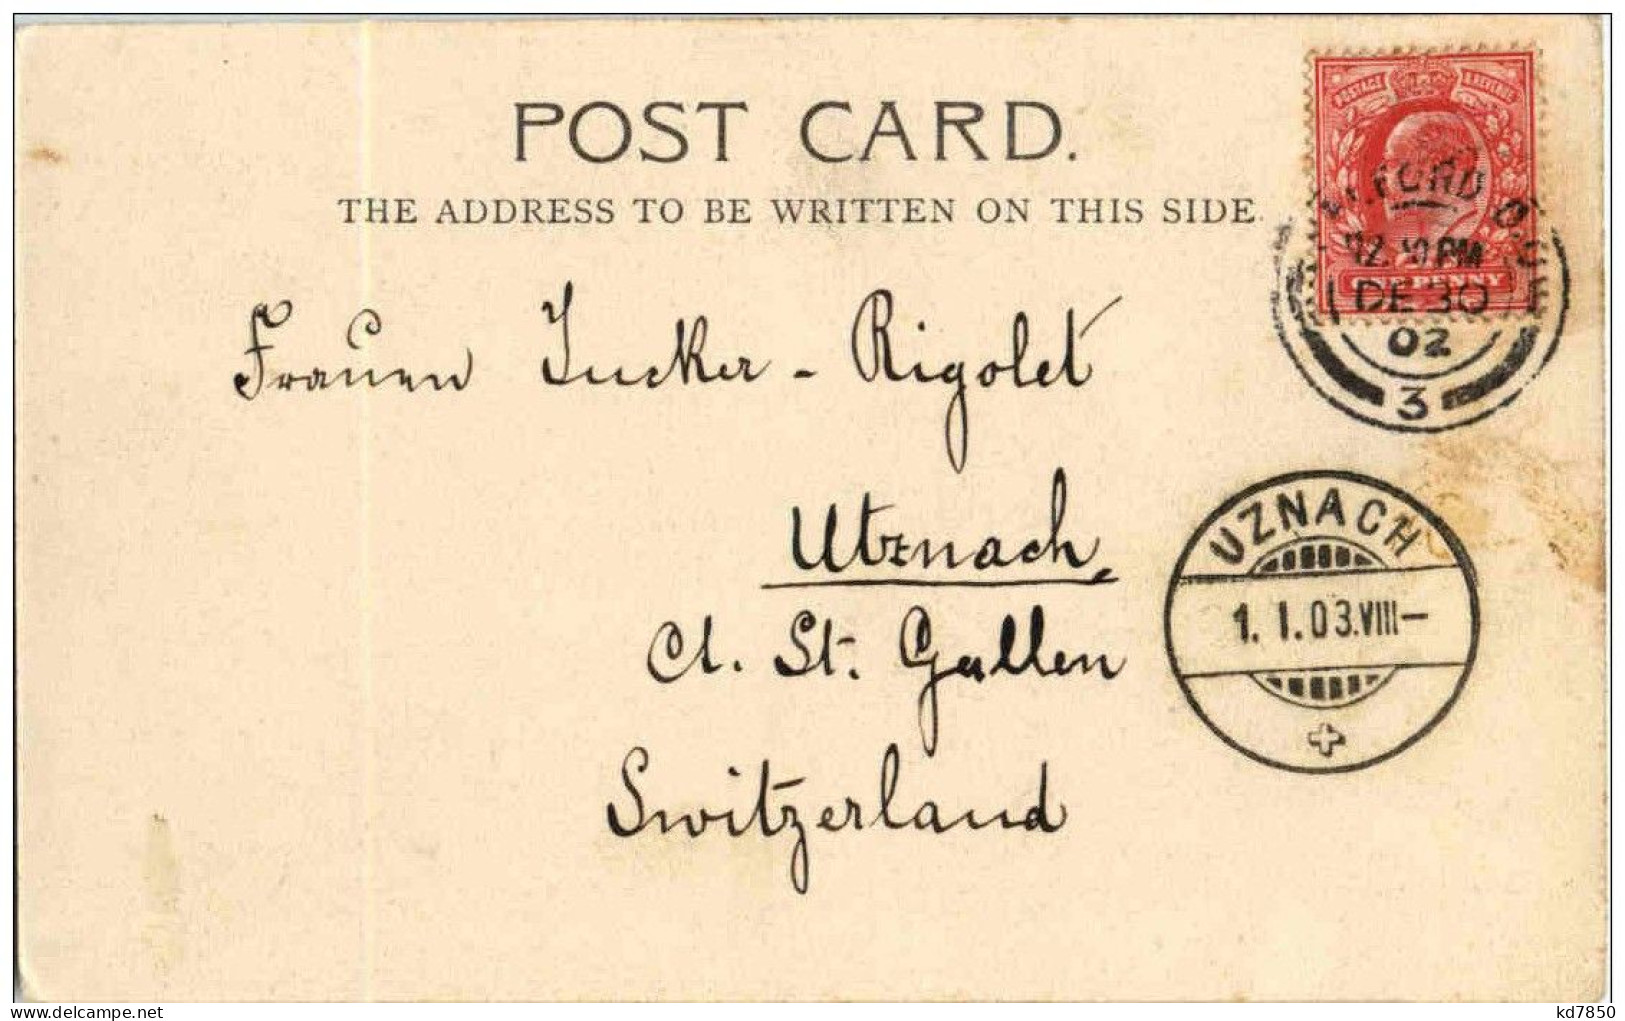 POST CARD.
THE ADDRESS TO BE WRITTEN ON THIS SIDE.
POSTAGE REVENUE
12.30 PM
DE 30
02
3
Frauen Zucker - Rigolet
Utznach,
Ct. St. Gallen
Switzerland
UZNACH
1. I. 03. VIII–
kd7850